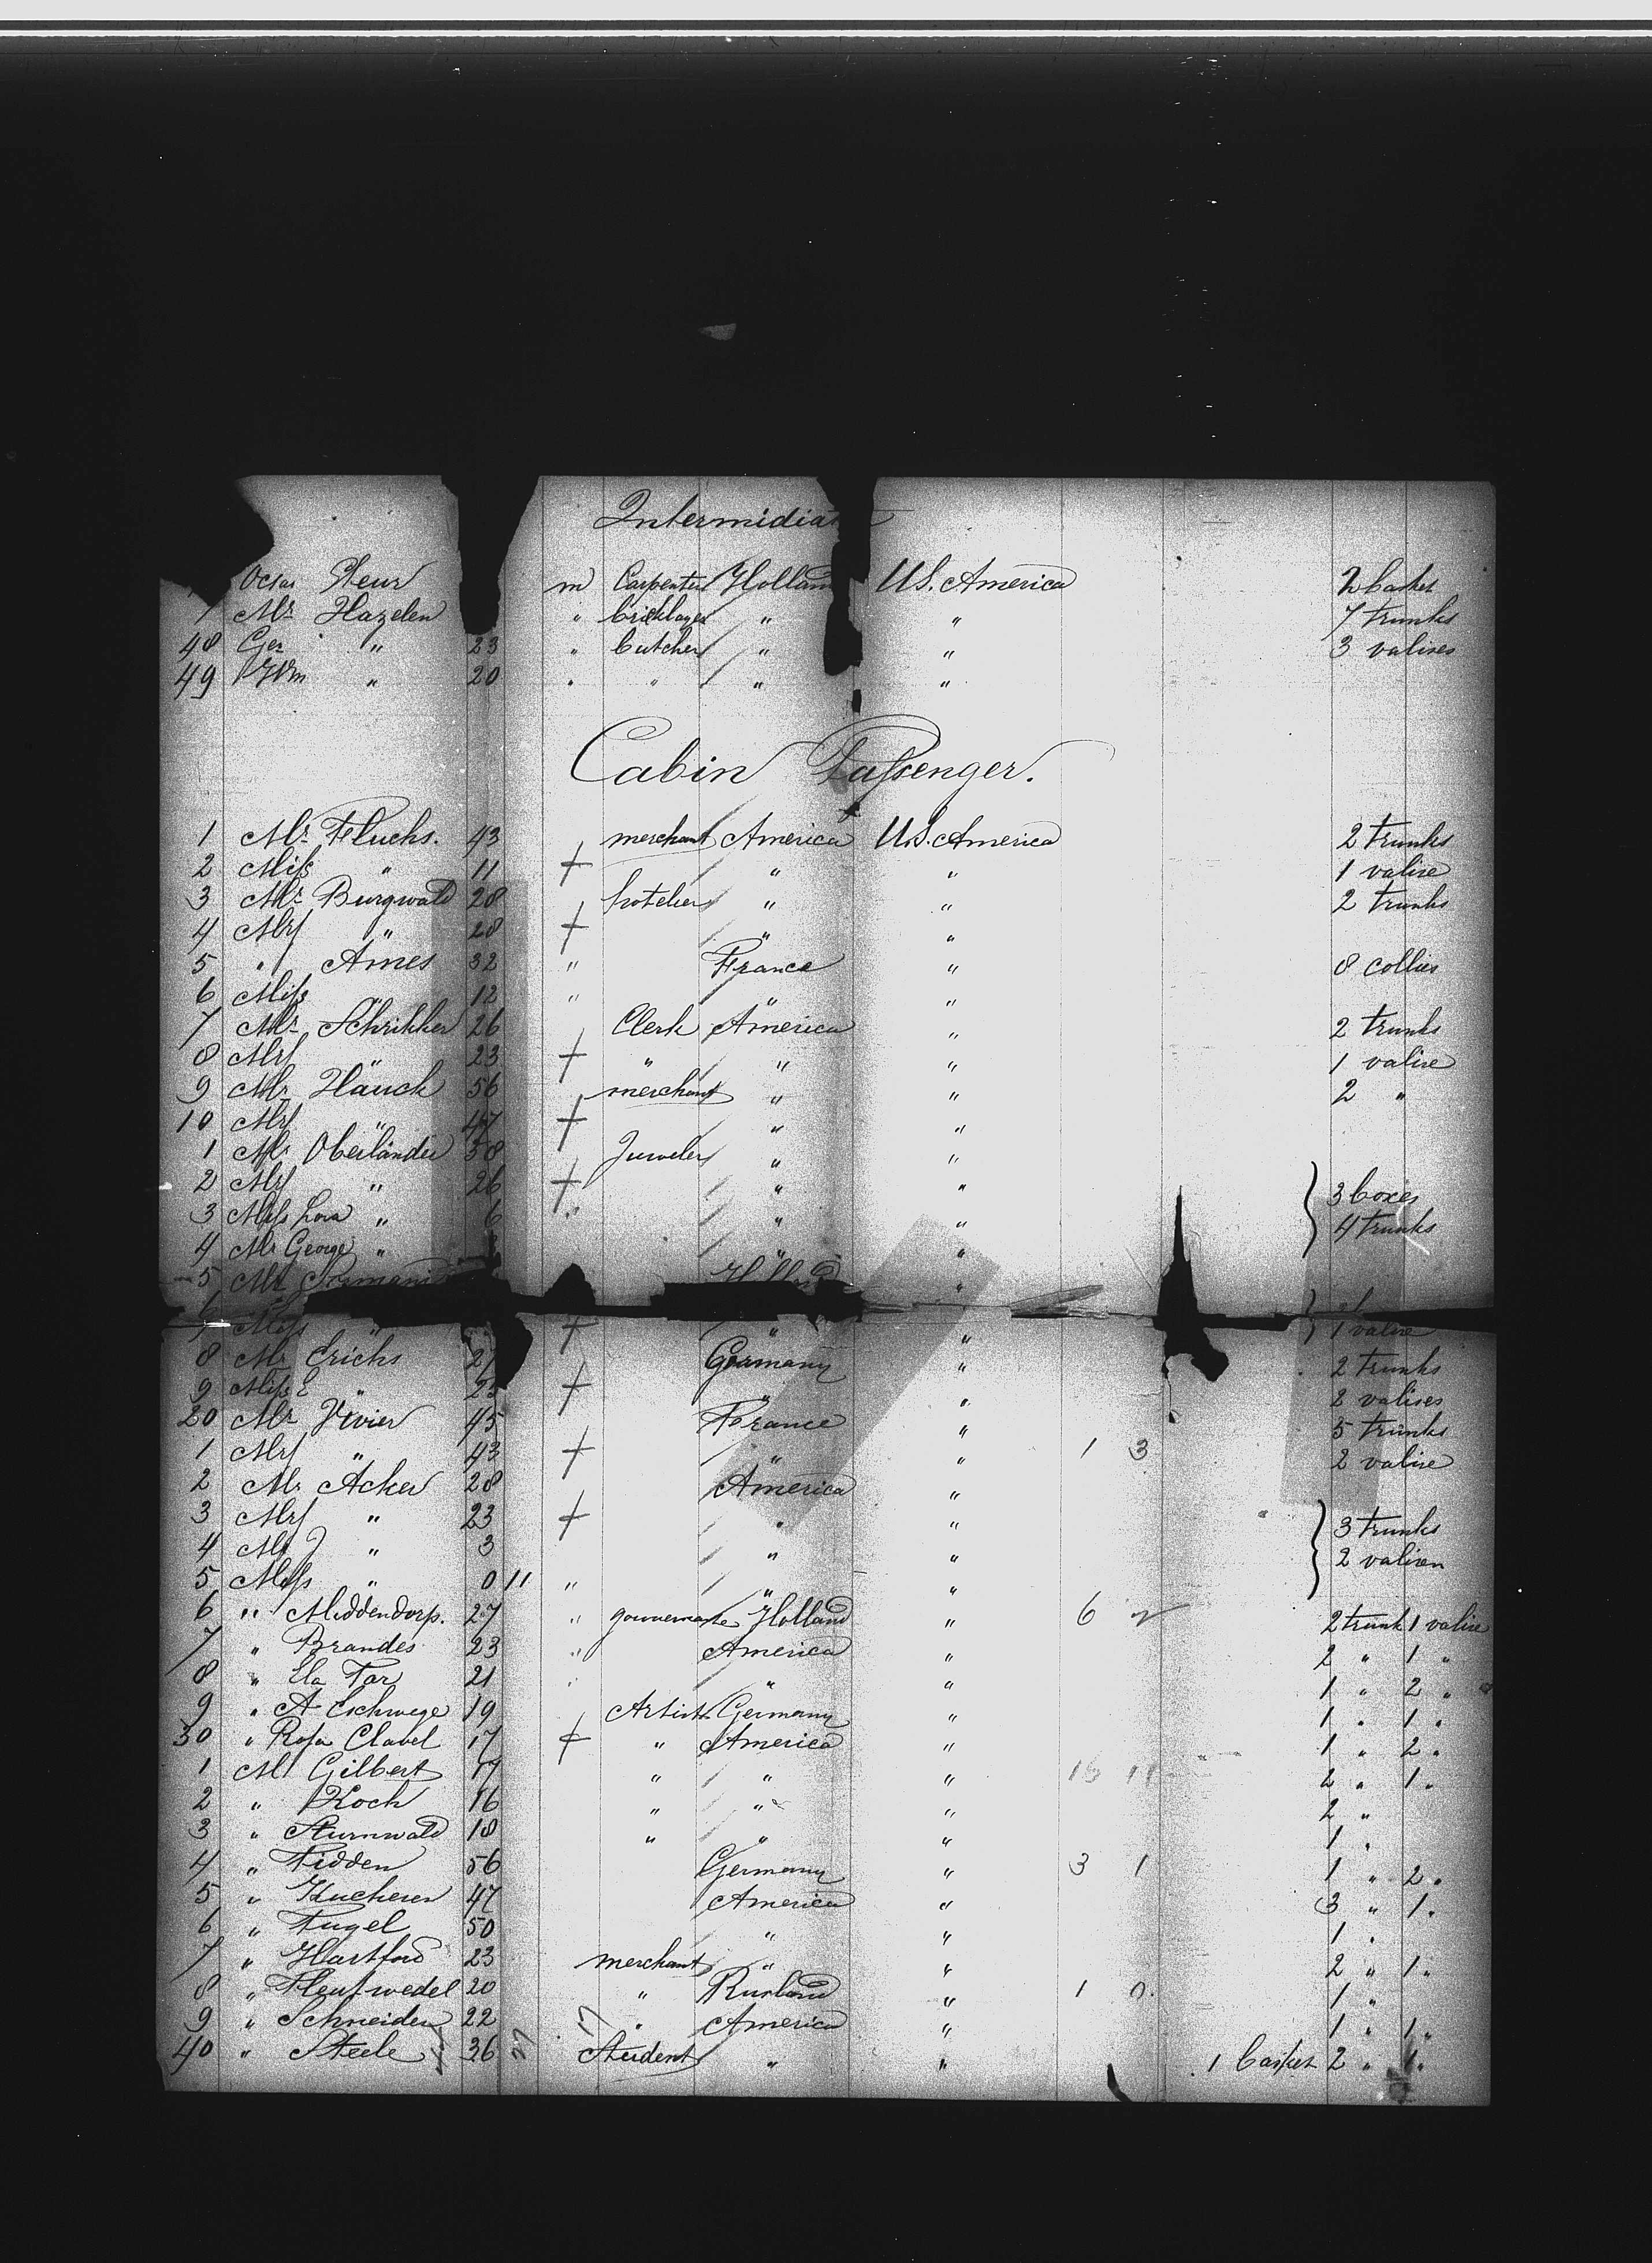 Intermidia
Octas Steur m Carpenter Holland U.S. America 2 basket
7 Mr. Hazelen " bricklayer " " 7 trunks
48 Ger " 23 " butcher " " 3 valises
49 Wm " 20 " " " "
Cabin Passenger.
1 Mr. Fluchs. 43 merchant America U.S. America 2 trunks
2 Miss " 11 + " " 1 valise
3 Mr. Burgwald 28 hotelier " " 2 trunks
4 Mrs " 28 + " "
5 " Ames 32 " France " 8 collies
6 Miss " 12 " " "
7 Mr. Schrikker 26 Clerk America " 2 trunks
8 Mrs " 23 + " " " 1 valise
9 Mr. Hauck 56 merchant " " 2 "
10 Mrs " 47 + " "
1 Mr. Oberländer 38 Juweler " "
2 Mrs " 26 + " " 3 boxes
3 Miss Lora " 6 " " " 4 trunks
4 Mr George " " "
5 Mr Holland "
Miss + " " 1 valise
8 Mr Erichs 27 Germany " 2 trunks
9 Miss E " 23 + " " 2 valises
20 Mr Vivier 45 France " 5 trunks
1 Mrs " 43 + " " 1 3 2 valise
2 Mr. Acker 28 America "
3 Mrs " 23 + " " 3 trunks
4 Mr J " 3 " " 2 valisen
5 Miss " 0 11 " " "
6 " Middendorp. 27 " gouvernante Holland " 6 2 trunk 1 valise
7 " Brandes 23 " America " 2 " 1 "
8 " Ela Tar 21 " " " 1 " 2 "
9 " A Eschwege 19 Artist Germany " 1 " 1 "
30 " Rosa Clavel 17 + " America " 1 " 2 "
1 Mr Gilbert 17 " " " 15 11 2 " 1 "
2 " Koch 16 " " " 2 "
3 " Sturnwald 18 " " " 1 "
4 " Fidden 56 Germany " 3 1 1 " 2 "
5 " Kucherer 47 America " 3 " 1 "
6 " Fugel 50 " " 1 "
7 " Hartford 23 merchant " " 2 " 1 "
8 " 20 " Rusland " 1 0. 1 "
9 " Schneider 22 " America " 1 " 1 "
40 " Steele 36 Student " " 1 basket 2 " 1 "